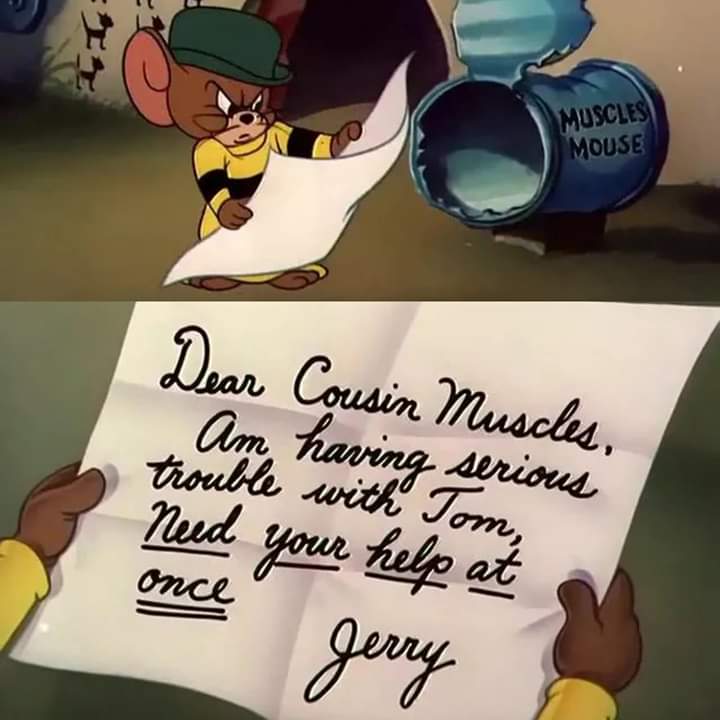 MUSCLES
MOUSE
Dear Cousin Muscles,
Am having serious
trouble with Tom,
Need your help at
once
Jerry